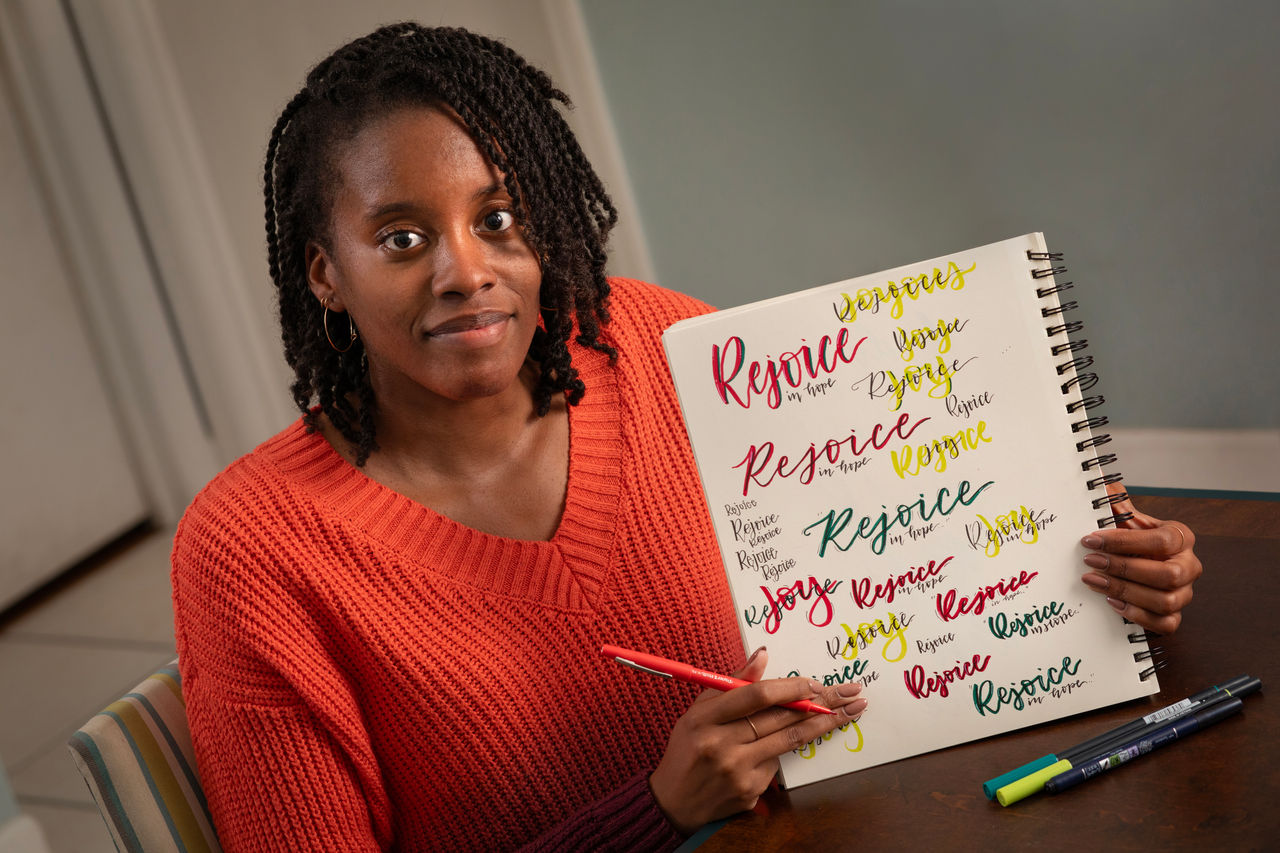 Rejoice
Rejoice
in hope
Rejoice
Joy
Rejoice
Joy
Rejoice
Rejoice
in hope
Rejoice
Rejoice
Rejoice
Rejoice
Rejoice
Rejoice
Rejoice
in hope
Rejoice
in hope
Joy
Rejoice
Joy
Rejoice
in hope
Rejoice
in hope
"Rejoice
in hope."
Rejoice
Joy
Rejoice
Rejoice
"Rejoice
in hope."